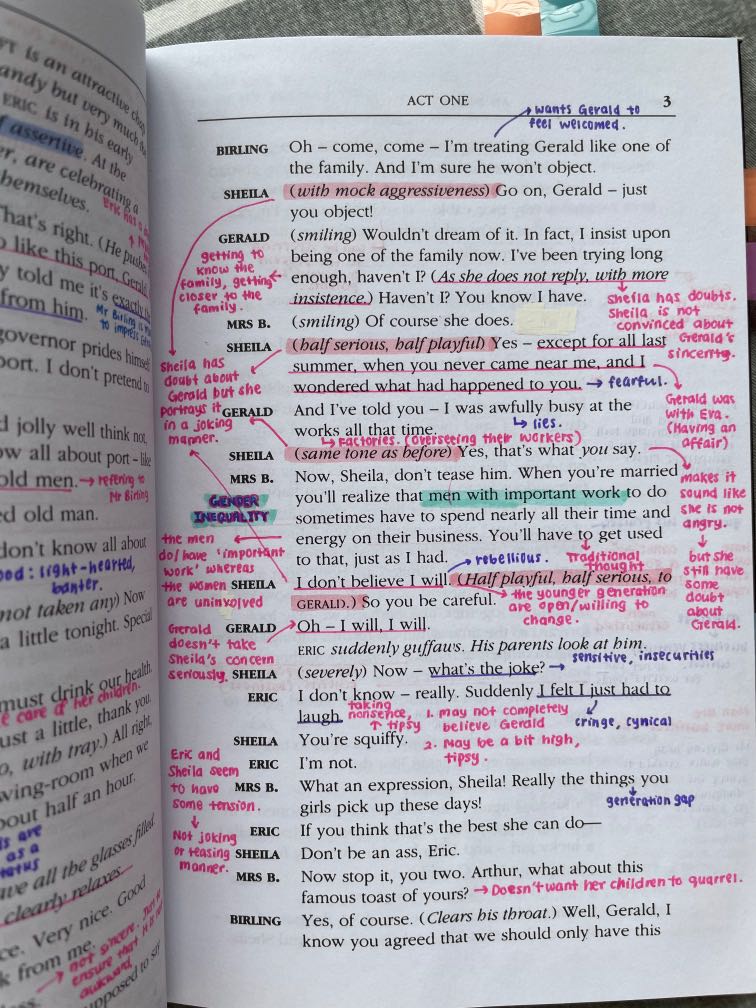 FT is an attractive chap
andy but very much the
ERIC is in his early
f assertive. At the
er, are celebrating a
hemselves.
Eric has a
That's right. (He pushes
o like this port, Gerald
y told me it's exactly the
from him. Mr Birling is
to impress
governor prides himself
port. I don't pretend to
d jolly well think not,
ow all about port – like
old men. → refering to
Mr Birling
ed old man.
don't know all about
ood: light-hearted,
banter.
not taken any) Now
a little tonight. Special
must drink our health.
e care of her children.
ust a little, thank you.
o, with tray.) All right,
wing-room when we
bout half an hour.
is are
as a
tatus
ave all the glasses filled.
clearly relaxes.
ce. Very nice. Good
k from me.
→ not sincere. Just to
ensure that it is not
awkward.
upposed to say
ACT ONE 3
→ wants Gerald to
feel welcomed.
BIRLING Oh – come, come – I'm treating Gerald like one of
the family. And I'm sure he won't object.
SHEILA (with mock aggressiveness) Go on, Gerald – just
you object!
GERALD (smiling) Wouldn't dream of it. In fact, I insist upon
being one of the family now. I've been trying long
enough, haven't I? (As she does not reply, with more
insistence.) Haven't I? You know I have.
getting to
know the
family, getting
closer to the
family.
sheila has doubts.
Sheila is not
convinced about
Gerald's
sincerity.
MRS B. (smiling) Of course she does.
SHEILA (half serious, half playful) Yes – except for all last
summer, when you never came near me, and I
wondered what had happened to you. → fearful.
Sheila has
doubt about
Gerald but she
portrays it
in a joking
manner.
Gerald was
with Eva.
(Having an
affair)
GERALD And I've told you – I was awfully busy at the
works all that time. ↳ lies.
↳ Factories. (overseeing their workers)
SHEILA (same tone as before) Yes, that's what you say.
makes it
sound like
she is not
angry.
↓
but she
still have
some
doubt
about
Gerald.
MRS B. Now, Sheila, don't tease him. When you're married
you'll realize that men with important work to do
sometimes have to spend nearly all their time and
energy on their business. You'll have to get used
to that, just as I had. → rebellious. Traditional
thought
GENDER
INEQUALITY
the men
do/have 'important
work' whereas
the women
are uninvolved
SHEILA I don't believe I will. (Half playful, half serious, to
GERALD.) So you be careful. → the younger generation
are open/willing to
change.
GERALD Oh – I will, I will.
Gerald
doesn't take
Sheila's concern
seriously.
ERIC suddenly guffaws. His parents look at him.
SHEILA (severely) Now – what's the joke? → sensitive, insecurities
ERIC I don't know – really. Suddenly I felt I just had to
laugh.
taking
nonsense,
↑ tipsy
1. may not completely
believe Gerald
2. May be a bit high,
tipsy.
cringe, cynical
SHEILA You're squiffy.
ERIC I'm not.
Eric and
Sheila seem
to have
some tension.
↓
Not joking
or teasing
manner.
MRS B. What an expression, Sheila! Really the things you
girls pick up these days!
generation gap
ERIC If you think that's the best she can do—
SHEILA Don't be an ass, Eric.
MRS B. Now stop it, you two. Arthur, what about this
famous toast of yours? → Doesn't want her children to quarrel.
BIRLING Yes, of course. (Clears his throat.) Well, Gerald, I
know you agreed that we should only have this